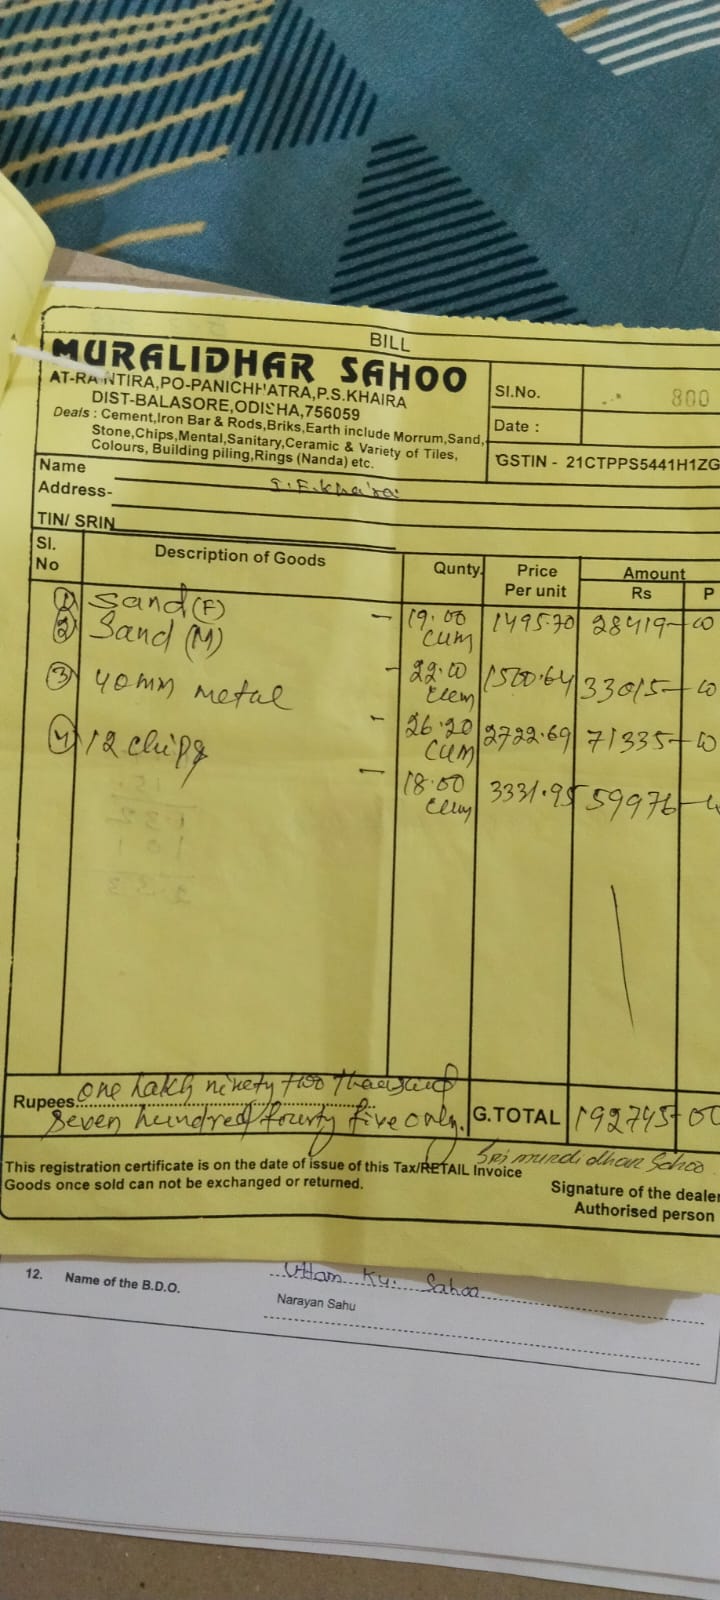 BILL
MURALIDHAR SAHOO
PO-PANICHHATRA,P.S.KHAIRA
DIST-BALASORE,ODISHA,756059
Deals : Cement,Iron Bar & Rods,Briks,Earth include Morrum,Sand,
Stone,Chips,Mental,Sanitary,Ceramic & Variety of Tiles,
Colours, Building piling,Rings (Nanda) etc.
Sl.No. 800
Date :
GSTIN - 21CTPPS5441H1ZG
Name
Address-
TIN/ SRIN
Sl. No Description of Goods Qunty. Price Per unit Amount Rs P
1 Sand (F) - 19.00 cum 1495.70 28419-00
2 Sand (M) - 22.00 cum 33015-00
3 40mm metal - 26.20 cum 2722.69 71335-00
4 12 chips - 18.00 cum 3331.95 59976
Rupees one lakh ninety two thousand
seven hundred fourty five only.
G.TOTAL 192745-00
This registration certificate is on the date of issue of this Tax/RETAIL Invoice
Goods once sold can not be exchanged or returned.
Signature of the dealer
Authorised person
12. Name of the B.D.O. Uttam Ku. Sahoo
Narayan Sahu